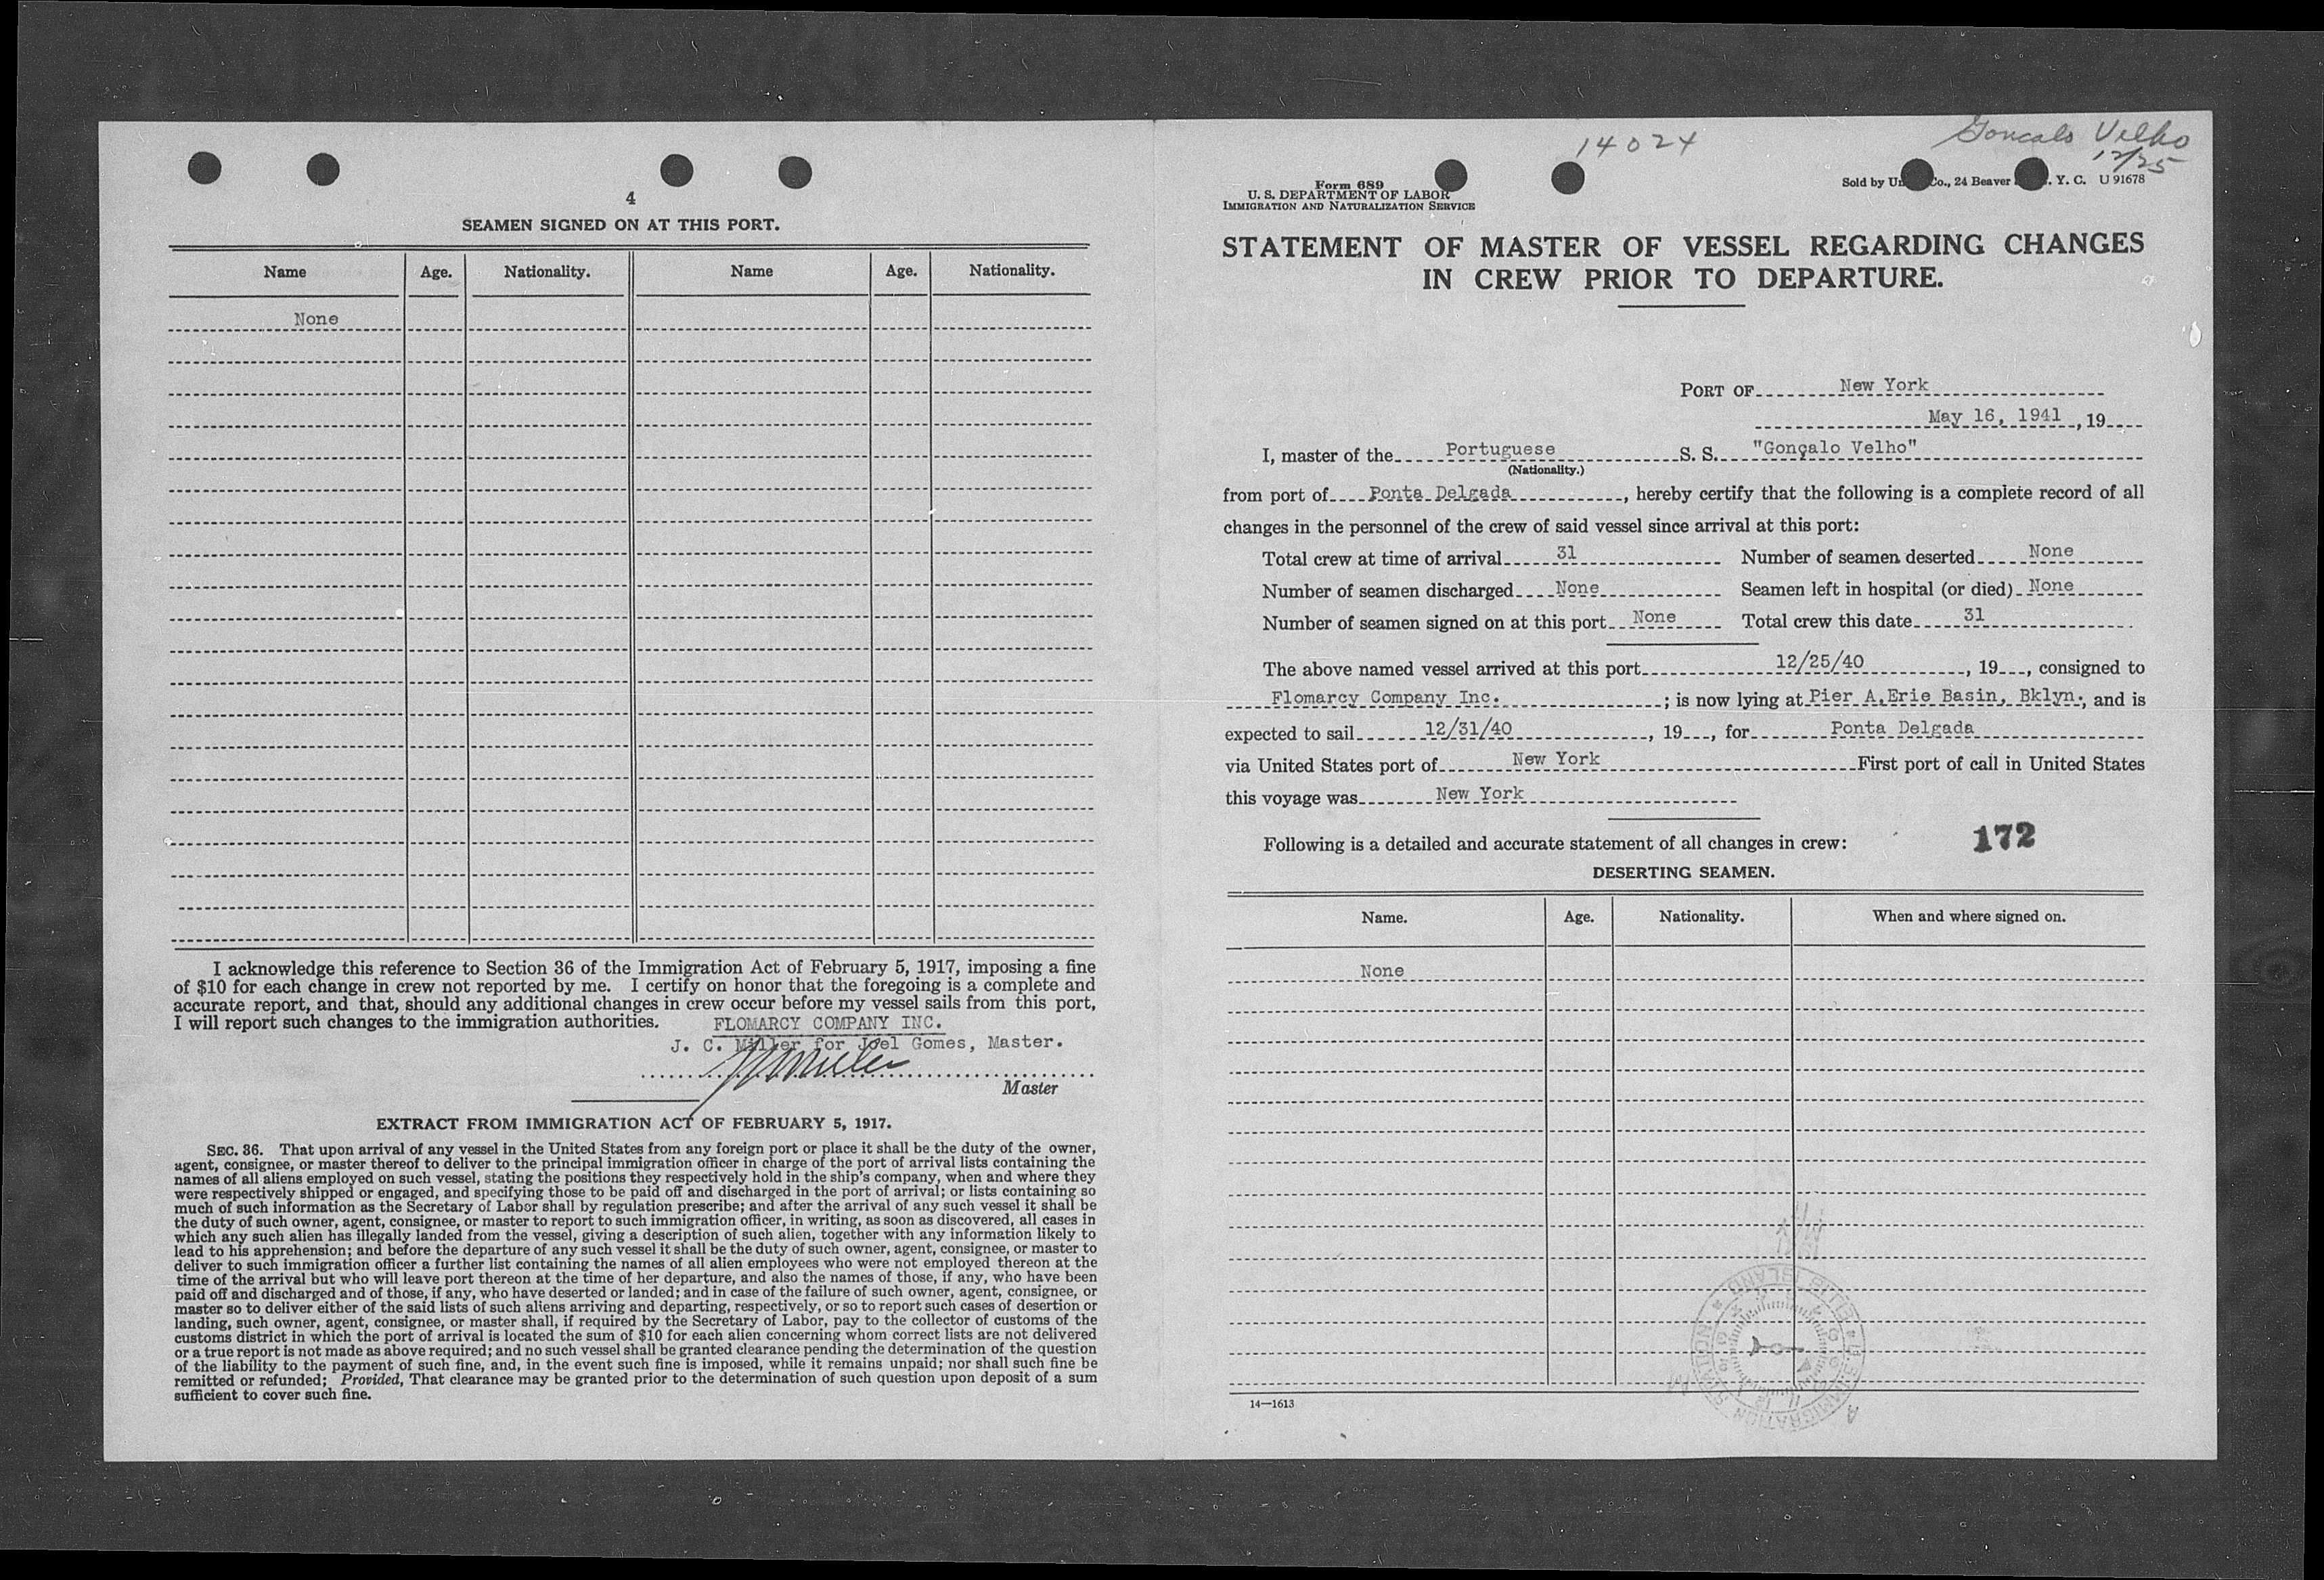 4
SEAMEN SIGNED ON AT THIS PORT.
Name Age. Nationality. Name Age. Nationality.
None
I acknowledge this reference to Section 36 of the Immigration Act of February 5, 1917, imposing a fine
of $10 for each change in crew not reported by me. I certify on honor that the foregoing is a complete and
accurate report, and that, should any additional changes in crew occur before my vessel sails from this port,
I will report such changes to the immigration authorities. FLOMARCY COMPANY INC.
J. C. Miller for Joel Gomes, Master.
Master
EXTRACT FROM IMMIGRATION ACT OF FEBRUARY 5, 1917.
SEC. 36. That upon arrival of any vessel in the United States from any foreign port or place it shall be the duty of the owner,
agent, consignee, or master thereof to deliver to the principal immigration officer in charge of the port of arrival lists containing the
names of all aliens employed on such vessel, stating the positions they respectively hold in the ship's company, when and where they
were respectively shipped or engaged, and specifying those to be paid off and discharged in the port of arrival; or lists containing so
much of such information as the Secretary of Labor shall by regulation prescribe; and after the arrival of any such vessel it shall be
the duty of such owner, agent, consignee, or master to report to such immigration officer, in writing, as soon as discovered, all cases in
which any such alien has illegally landed from the vessel, giving a description of such alien, together with any information likely to
lead to his apprehension; and before the departure of any such vessel it shall be the duty of such owner, agent, consignee, or master to
deliver to such immigration officer a further list containing the names of all alien employees who were not employed thereon at the
time of the arrival but who will leave port thereon at the time of her departure, and also the names of those, if any, who have been
paid off and discharged and of those, if any, who have deserted or landed; and in case of the failure of such owner, agent, consignee, or
master so to deliver either of the said lists of such aliens arriving and departing, respectively, or so to report such cases of desertion or
landing, such owner, agent, consignee, or master shall, if required by the Secretary of Labor, pay to the collector of customs of the
customs district in which the port of arrival is located the sum of $10 for each alien concerning whom correct lists are not delivered
or a true report is not made as above required; and no such vessel shall be granted clearance pending the determination of the question
of the liability to the payment of such fine, and, in the event such fine is imposed, while it remains unpaid; nor shall such fine be
remitted or refunded; Provided, That clearance may be granted prior to the determination of such question upon deposit of a sum
sufficient to cover such fine.
14024
Goncalo Velho
12/25
Form 689
U. S. DEPARTMENT OF LABOR
IMMIGRATION AND NATURALIZATION SERVICE
Sold by Co., 24 Beaver Y. C. U 91678
STATEMENT OF MASTER OF VESSEL REGARDING CHANGES
IN CREW PRIOR TO DEPARTURE.
PORT OF New York
May 16, 1941, 19
I, master of the Portuguese S. S. "Gonçalo Velho"
(Nationality.)
from port of Ponta Delgada, hereby certify that the following is a complete record of all
changes in the personnel of the crew of said vessel since arrival at this port:
Total crew at time of arrival 31 Number of seamen deserted None
Number of seamen discharged None Seamen left in hospital (or died) None
Number of seamen signed on at this port None Total crew this date 31
The above named vessel arrived at this port 12/25/40, 19, consigned to
Flomarcy Company Inc. ; is now lying at Pier A,Erie Basin, Bklyn., and is
expected to sail 12/31/40, 19, for Ponta Delgada
via United States port of New York First port of call in United States
this voyage was New York
Following is a detailed and accurate statement of all changes in crew: 172
DESERTING SEAMEN.
Name. Age. Nationality. When and where signed on.
None
14—1613